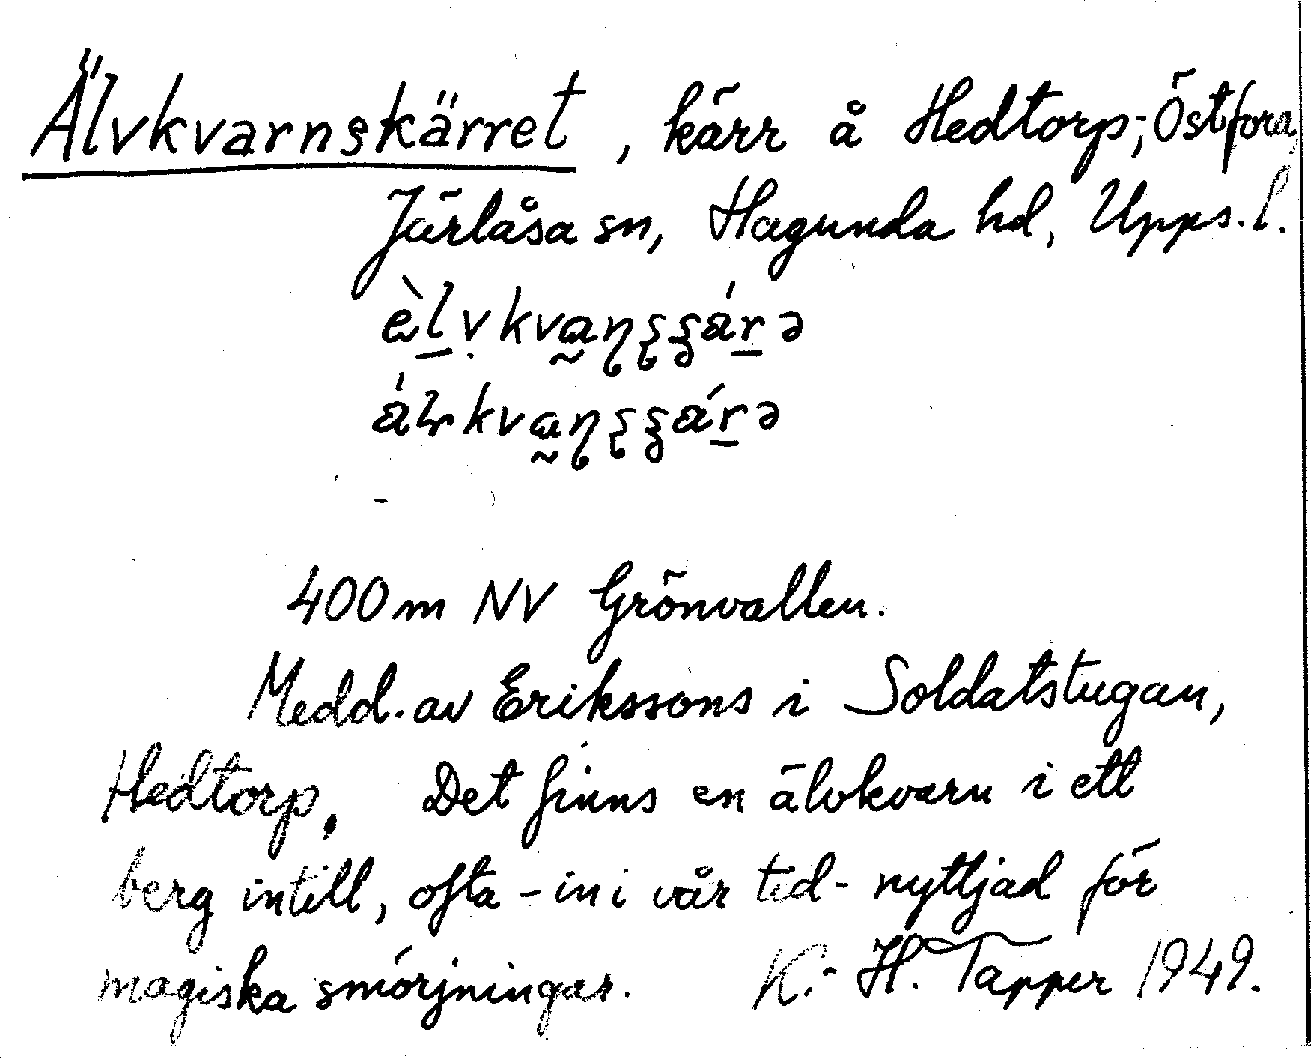 Älvkvarnskärret, kärr å Hedtorp, Östfora,
Järlåsa sn, Hagunda hd, Upps. l.
400 m NV Grönvallen.
Medd. av Erikssons i Soldatstugan,
Hedtorp. Det finns en älvkvarn i ett
berg intill, ofta - in i vår tid - nyttjad för
magiska smörjningar. K.-H. Tapper 1949.